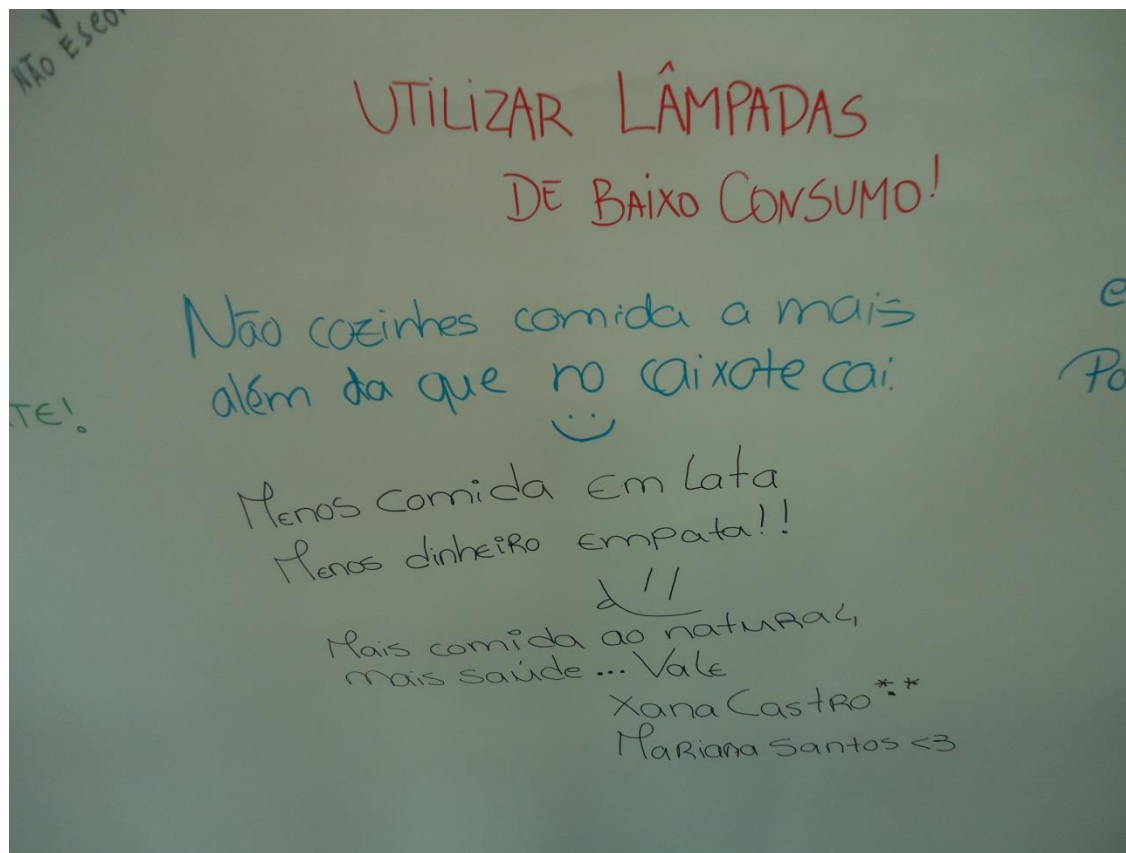 NÃO
UTILIZAR LÂMPADAS
DE BAIXO CONSUMO!
Não cozinhes comida a mais
além da que no caixote cai.
TE!
e
Po
Menos comida em lata
Menos dinheiro empata!!
Mais comida ao natural,
mais saúde... Vale
Xana Castro *.*
Mariana Santos <3